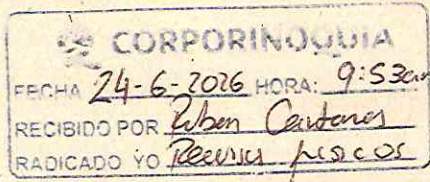 CORPORINOQUIA
FECHA 24-6-2026 HORA: 9:53am
RECIBIDO POR Ruben Cardenas
RADICADO YO Recursos fisicos